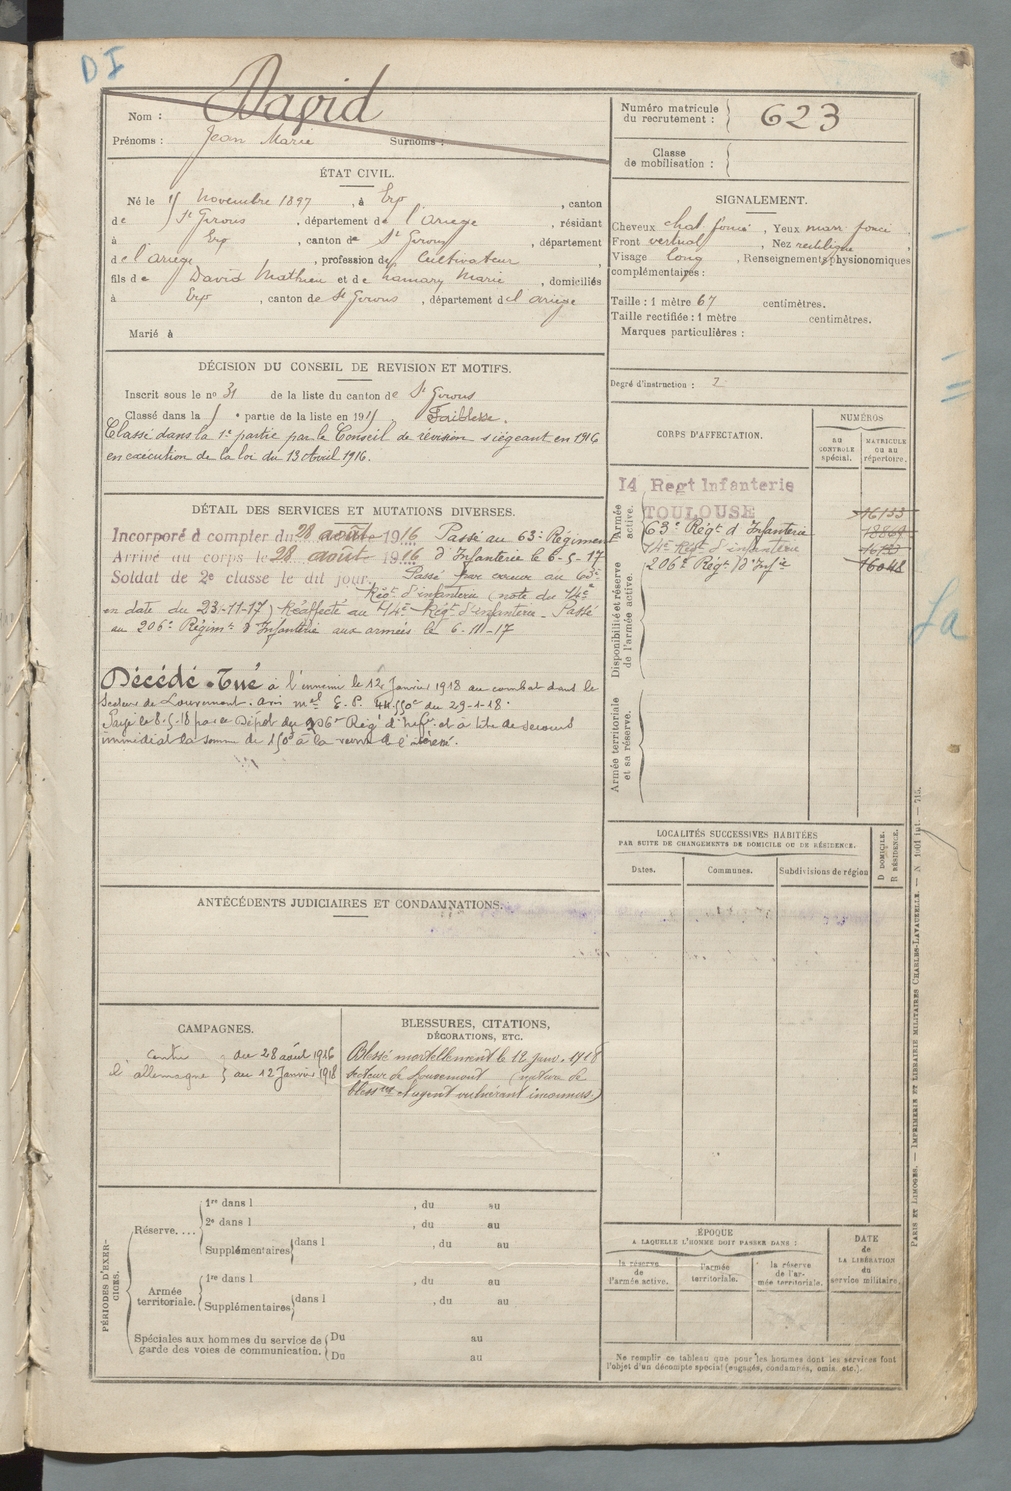 DI
Nom : David
Prénoms : Jean Marie Surnoms :
Numéro matricule
du recrutement : 623
Classe
de mobilisation :
ÉTAT CIVIL.
Né le novembre 1897, à Erp, canton
de St Girons, département de l'Ariege, résidant
à Erp, canton de St Girons, département
de l'ariege, profession de Cultivateur,
fils de David Mathieu et de Marie, domiciliés
à Erp, canton de St Girons, département de l'ariege
Marié à
SIGNALEMENT.
Cheveux chat. foncé, Yeux mar. foncé,
Front vertical, Nez rectiligne
Visage long, Renseignements physionomiques
complémentaires :
Taille : 1 mètre 67 centimètres.
Taille rectifiée : 1 mètre centimètres.
Marques particulières :
Degré d'instruction : 2
DÉCISION DU CONSEIL DE REVISION ET MOTIFS.
Inscrit sous le no 31 de la liste du canton de St Girons
Classé dans la partie de la liste en 191 Faiblesse.
Classé dans la 1e partie par le Conseil de révision siégeant en 1916
en execution de la loi du 13 Avril 1916.
CORPS D'AFFECTATION.
NUMÉROS
AU
CONTROLE
spécial.
MATRICULE
OU AU
répertoire.
Armée
active.
14 Regt Infanterie
TOULOUSE 16133
63e Régt d'Infanterie
14e Régt d'infanterie
206e Régt d'Infie 16048
Disponibilité et réserve
de l'armée active.
Armée territoriale
et sa réserve.
DÉTAIL DES SERVICES ET MUTATIONS DIVERSES.
Incorporé à compter du 28 août 1916 Passé au 63e Régiment
Arrivé au corps le 28 août 1916 d'Infanterie le 6-5-17
Soldat de 2e classe le dit jour. Passé par erreur au 63e
Régt d'infanterie (note du 14e
en date du 23-11-17) Réaffecté au 14e Régt d'infanterie - Passé
au 206e Régimt d'Infanterie aux armées le 6-11-17
Décédé - Tué à l'ennemi le 12 Janvier 1918 au combat dans le
secteur de Louvemont. avis mel E. P. du 29-1-18.
Payé le 8-5-18 par le Dépôt du 206e Régt d'Infie et à titre de secours
immédiat la somme de 150f à la
LOCALITÉS SUCCESSIVES HABITÉES
PAR SUITE DE CHANGEMENTS DE DOMICILE OU DE RÉSIDENCE.
D DOMICILE.
R RÉSIDENCE.
Dates. Communes. Subdivisions de région
ANTÉCÉDENTS JUDICIAIRES ET CONDAMNATIONS.
CAMPAGNES.
contre du 28 août 1916
l'allemagne au 12 Janvier 1918
BLESSURES, CITATIONS,
DÉCORATIONS, ETC.
Blessé mortellement le 12 janv. 1918
secteur de Louvemont (nature de
blessure et agent vulnérant inconnus)
PÉRIODES D'EXERCICES.
Réserve....
1re dans l , du au
2e dans l , du au
Supplémentaires dans l , du au
Armée
territoriale.
1re dans l , du au
Supplémentaires dans l , du au
Spéciales aux hommes du service de
garde des voies de communication.
Du au
Du au
ÉPOQUE
A LAQUELLE L'HOMME DOIT PASSER DANS :
la réserve
de
l'armée active.
l'armée
territoriale.
la réserve
de l'ar-
mée territoriale.
DATE
de
LA LIBÉRATION
du
service militaire.
Ne remplir ce tableau que pour les hommes dont les services font
l'objet d'un décompte spécial (engagés, condamnés, omis, etc.).
PARIS ET LIMOGES. — IMPRIMERIE ET LIBRAIRIE MILITAIRES CHARLES-LAVAUZELLE.